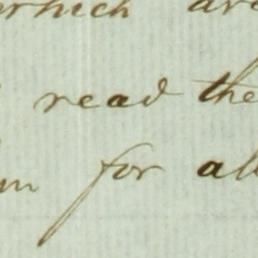 which are
read the
for all